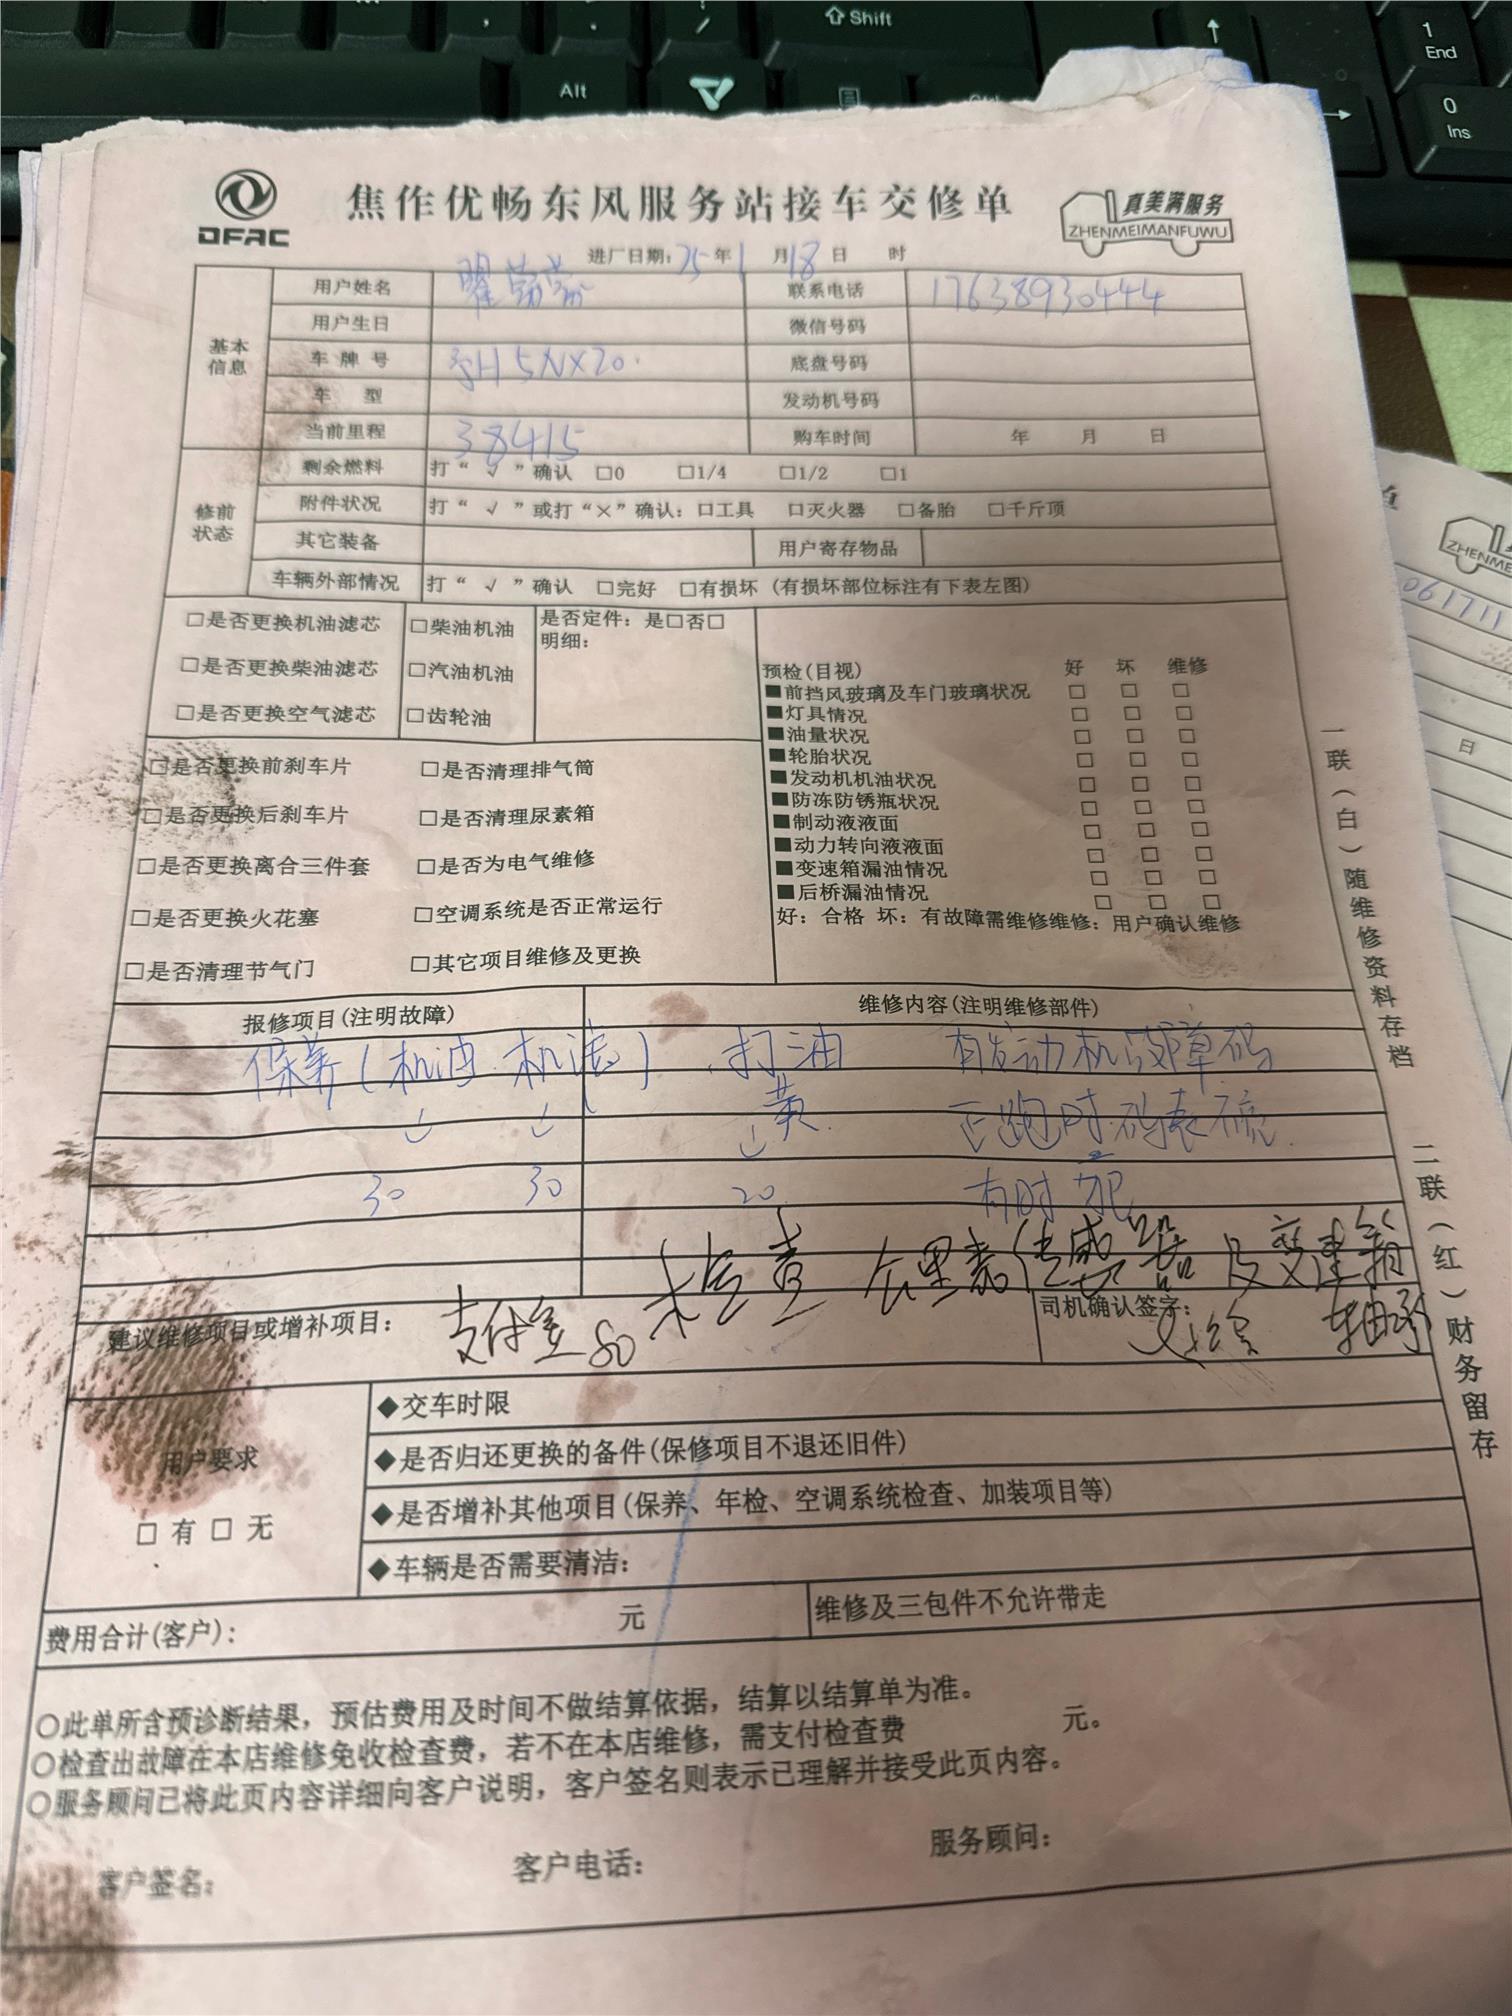 Shift
Alt
1
End
0
Ins
DFAC
焦作优畅东风服务站接车交修单
真美满服务
ZHENMEIMANFUWU
进厂日期：25年1月18日 时
基本信息
用户姓名 翟 联系电话 17638930444
用户生日 微信号码
车牌号 豫H5NX20 底盘号码
车 型 发动机号码
当前里程 38415 购车时间 年 月 日
修前状态
剩余燃料 打“√”确认 □0 □1/4 □1/2 □1
附件状况 打“√”或打“×”确认：□工具 □灭火器 □备胎 □千斤顶
其它装备 用户寄存物品
车辆外部情况 打“√”确认 □完好 □有损坏（有损坏部位标注有下表左图）
□是否更换机油滤芯 □柴油机油 是否定件：是□否□
明细：
□是否更换柴油滤芯 □汽油机油
□是否更换空气滤芯 □齿轮油
□是否更换前刹车片 □是否清理排气筒
□是否更换后刹车片 □是否清理尿素箱
□是否更换离合三件套 □是否为电气维修
□是否更换火花塞 □空调系统是否正常运行
□是否清理节气门 □其它项目维修及更换
预检(目视) 好 坏 维修
■前挡风玻璃及车门玻璃状况 □ □ □
■灯具情况 □ □ □
■油量状况 □ □ □
■轮胎状况 □ □ □
■发动机机油状况 □ □ □
■防冻防锈瓶状况 □ □ □
■制动液液面 □ □ □
■动力转向液液面 □ □ □
■变速箱漏油情况 □ □ □
■后桥漏油情况 □ □ □
好：合格 坏：有故障需维修维修：用户确认维修
报修项目(注明故障) 维修内容(注明维修部件)
保养(机油.机滤) 打油 有发动机故障码
黄 跑时.码表不亮
30 30 20 有时
检查 里表传感器及变速箱
轴承
建议维修项目或增补项目： 支付宝80 司机确认签字：
用户要求
□有□无
◆交车时限
◆是否归还更换的备件(保修项目不退还旧件)
◆是否增补其他项目(保养、年检、空调系统检查、加装项目等)
◆车辆是否需要清洁：
费用合计(客户)： 元 维修及三包件不允许带走
○此单所含预诊断结果，预估费用及时间不做结算依据，结算以结算单为准。
○检查出故障在本店维修免收检查费，若不在本店维修，需支付检查费 元。
○服务顾问已将此页内容详细向客户说明，客户签名则表示已理解并接受此页内容。
客户签名： 客户电话： 服务顾问：
一联（白）随维修资料存档
二联（红）财务留存
单
ZHENME
061711
日